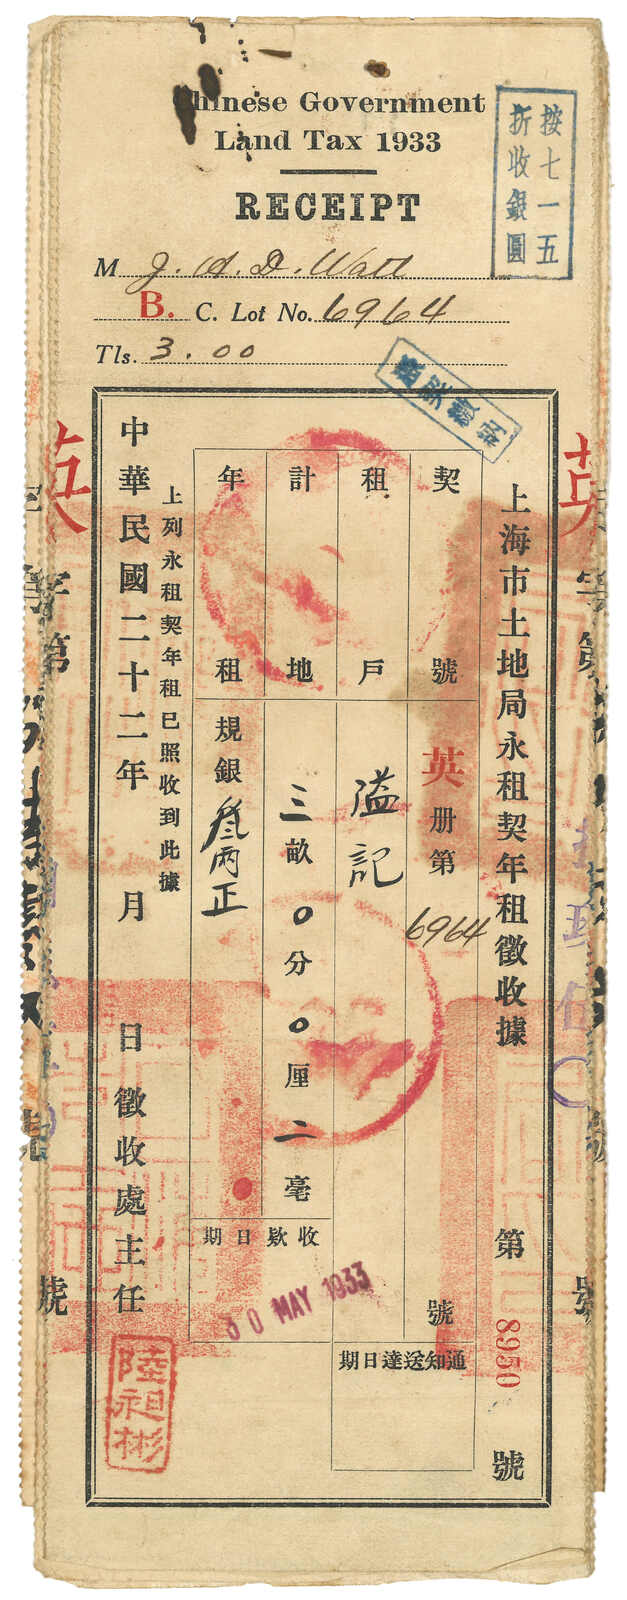 Chinese Government
Land Tax 1933
RECEIPT
按七一五
折收銀圓
M J. A. D. Watt
B. C. Lot No. 6964
Tls. 3.00
上海市土地局永租契年租徵收據
第 8950 號
契號 英册第 6964 號
租戶 謚記
計地 三畝0分0厘二毫
年租 規銀叁兩正
通知送達日期
收款日期
30 MAY 1933
上列永租契年租已照收到此據
中華民國二十二年 月 日徵收處主任
陸祖彬
英
字第
號
英
字第
號